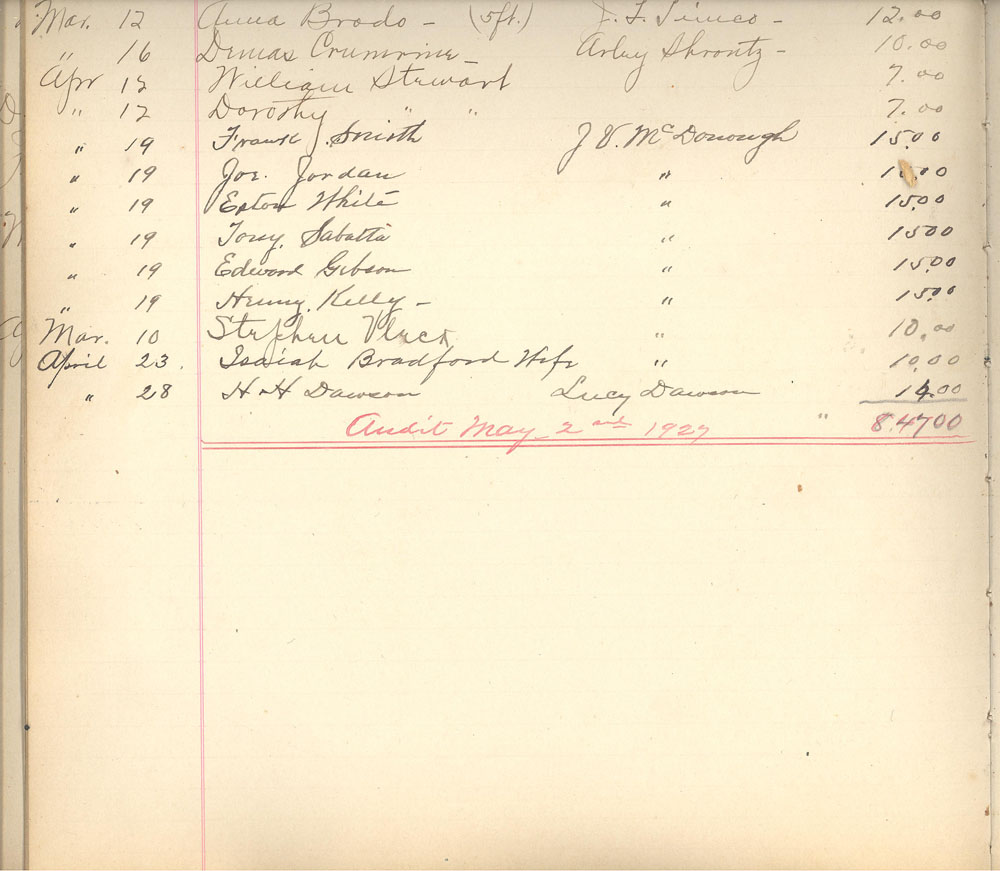 Mar. 12 Anna Brado - (5ft.) J. F. Timco - 12.00
" 16 Dimas Crumrine - Arley Shrontz - 10.00
Apr 12 William Stewart 7.00
" 12 Dorothy " " 7.00
" 19 Frank J. Smith J V. McDonough 15.00
" 19 Joe. Jordan " .00
" 19 White " 15.00
" 19 Tony. Sabatta " 1500
" 19 Edward Gibson " 15.00
" 19 Henry. Kelly - " 15.00
Mar. 10 Stephen Vleck " 10.00
April 23. Isaiah Bradford Wife " 10.00
" 28 H H Dawson Lucy Dawson 14.00
Audit May 2nd 1927 " 84700